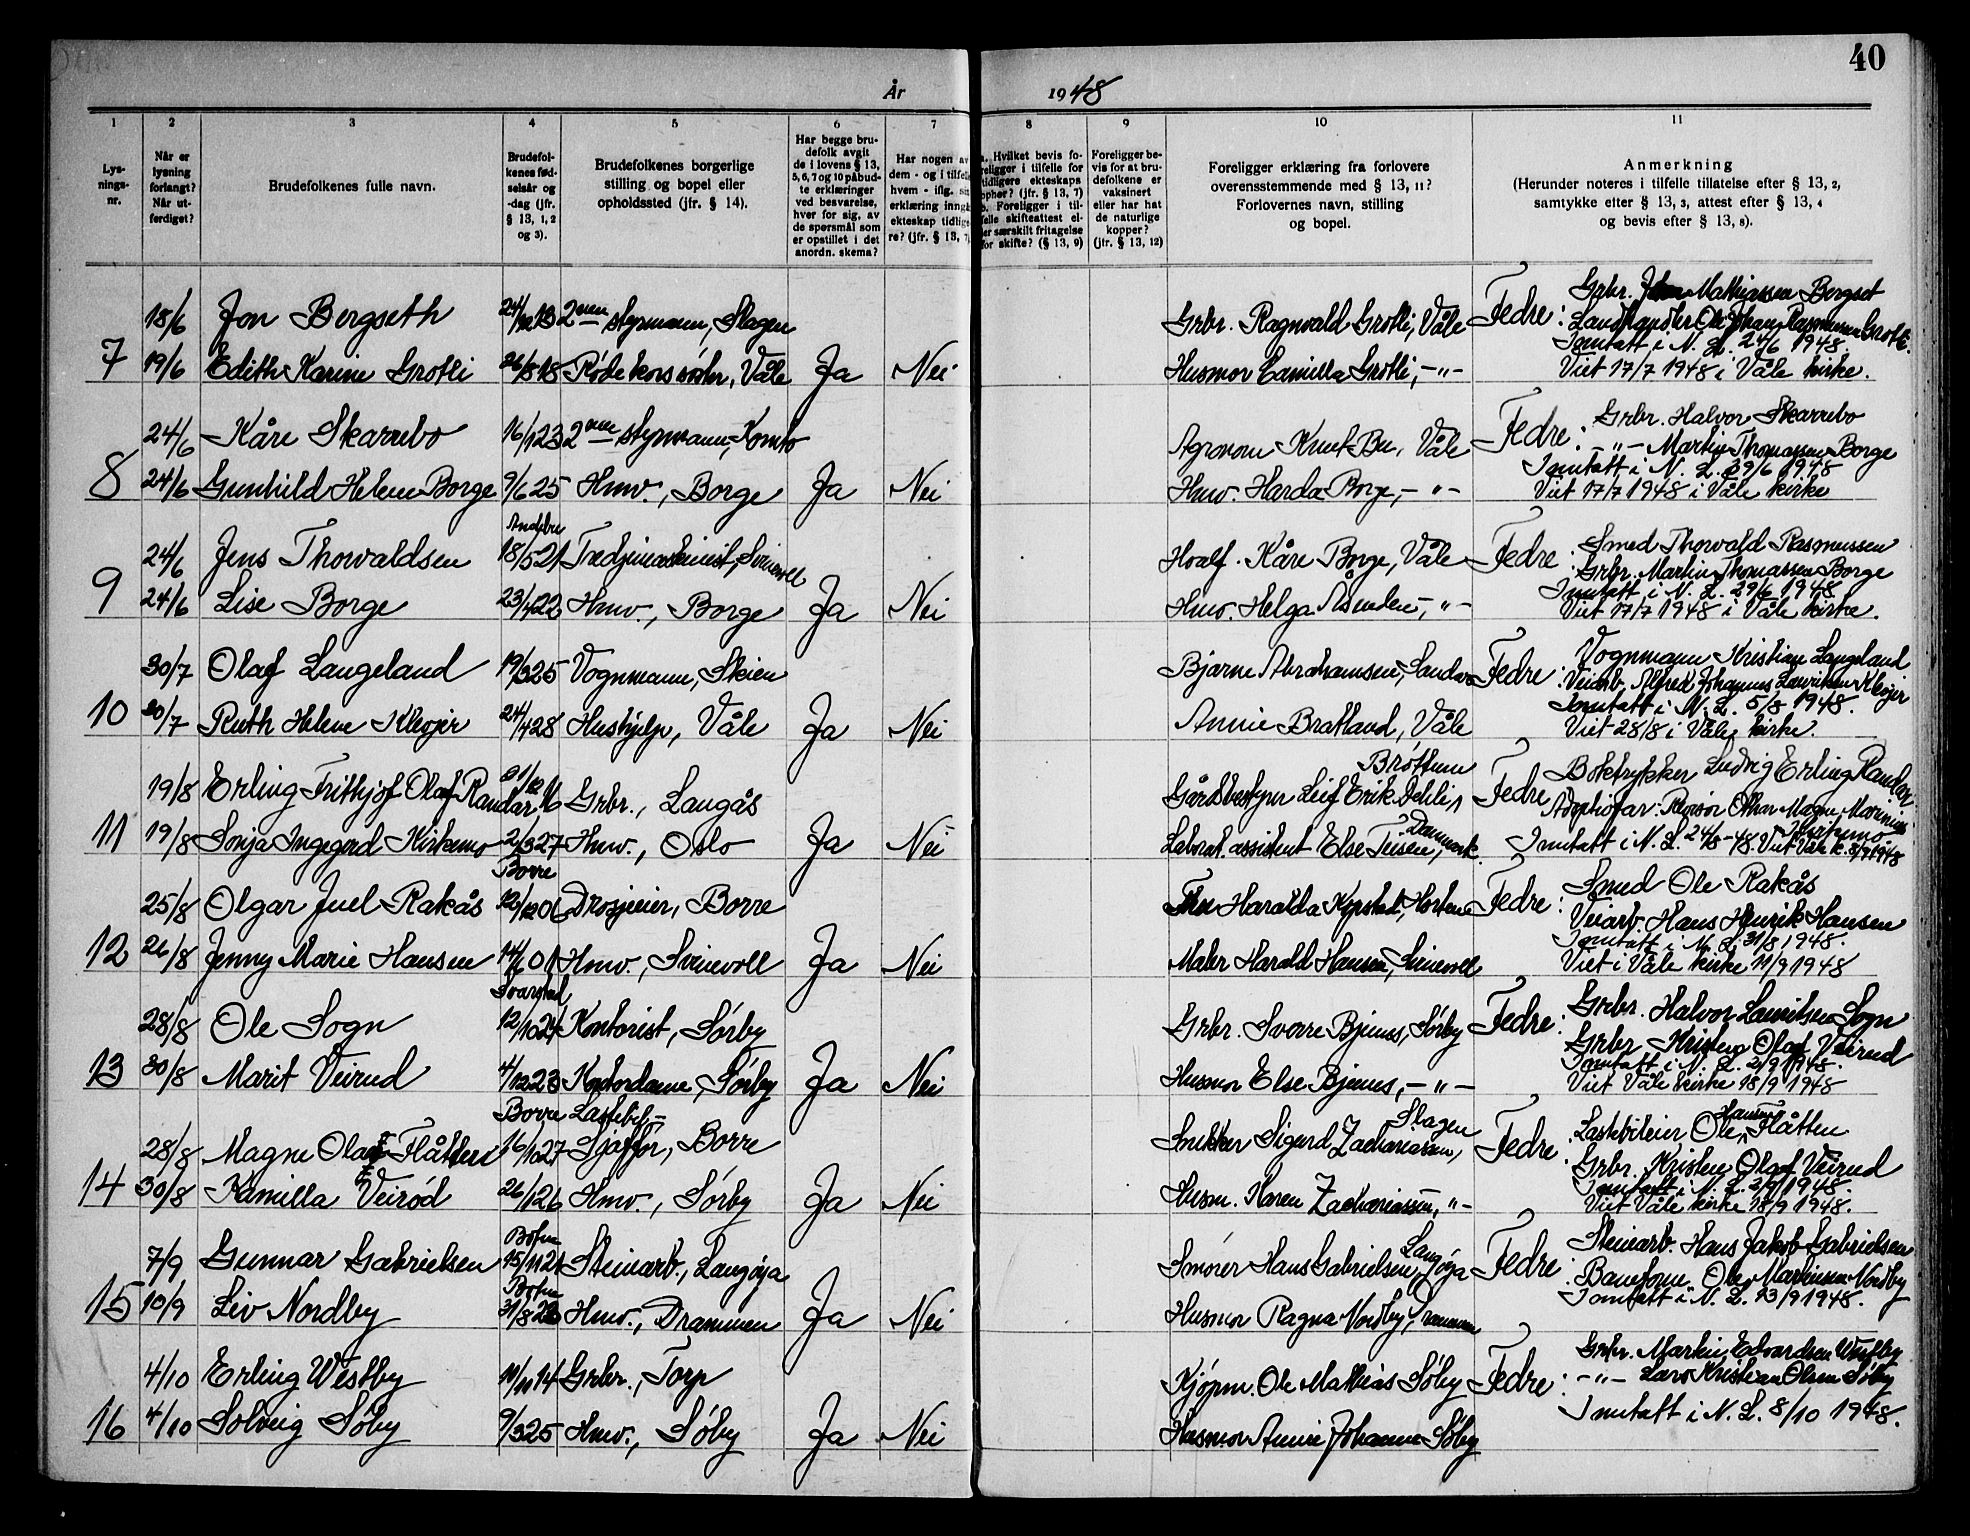 40
År 1948
1 2 3 4 5 6 7 8 9 10 11
Lysningsnr.
Når er lysning forlangt? Når utferdiget?
Brudefolkenes fulle navn.
Brudefolkenes fødselsår og -dag (jfr. § 13, 1, 2 og 3).
Brudefolkenes borgerlige stilling og bopel eller opholdssted (jfr. § 14).
Har begge brudefolk avgit de i lovens § 13, 5, 6, 7 og 10 påbudte erklæringer ved besvarelse, hver for sig, av de spørsmål som er opstillet i det anordn. skema?
Har nogen av dem - og i tilfelle hvem - iflg. sin erklæring inngått ekteskap tidligere? (jfr. § 13, 7)
a. Hvilket bevis foreligger i tilfelle for tidligere ekteskaps opphør? (jfr. § 13, 7) b. Foreligger i tilfelle skifteattest eller særskilt fritagelse for skifte? (§ 13, 9)
Foreligger bevis for at brudefolkene er vaksinert eller har hat de naturlige kopper? (jfr. § 13, 12)
Foreligger erklæring fra forlovere overensstemmende med § 13, 11? Forlovernes navn, stilling og bopel.
Anmerkning (Herunder noteres i tilfelle tillatelse efter § 13, 2, samtykke efter § 13, 3, attest efter § 13, 4 og bevis efter § 13, 8).
18/6 Jon Bergseth 24/12 13 2nen styrmann, Slagen Grbr. Ragnvald Grotli, Våle Fedre: Grbr. Mathiassen Bergset
Landhandler Ole Johan Rasmussen Grotli.
Inntatt i N. L. 24/6 1948.
7 19/6 Edith Karine Grotli 26/8 18 Røde kors søster, Våle Ja Nei Husmor Camilla Grotli, -"- Viet 17/7 1948 i Våle kirke.
24/6 Kåre Skarrebo 16/1 23 2nen styrmann, Kombo Agronom Knut Bu, Våle Fedre: Grbr. Halvor Skarrebo
-"- Martin Thomassen Borge
Inntatt i N. L. 29/6 1948
8 24/6 Gunhild Helene Borge 9/6 25 Hmv., Borge Ja Nei Hmv. Harda Borge, -"- Viet 17/7 1948 i Våle kirke
Andebu
24/6 Jens Thorvaldsen 18/5 21 Tredjemaskinist, Svinevoll Hvalf. Kåre Borge, Våle Fedre: Smed Thorvald Rasmussen
Grbr. Martin Thomassen Borge
Inntatt i N. L. 29/6 1948
9 24/6 Lise Borge 23/4 22 Hmv., Borge Ja Nei Hmv. Helga Åsenden, -"- Viet 17/7 1948 i Våle kirke.
30/7 Olaf Langeland 19/3 25 Vognmann, Skien Bjarne Abrahamsen, Fedre: Vognmann Kristian Langeland
Veiarb. Alfred Johannes Lauritsen Kleppe
Inntatt i N. L. 5/8 1948.
10 30/7 Ruth Helene 24/4 28 Hushjelp, Våle Ja Nei Annie Bratland, Våle Viet 28/8 i Våle kirke.
Brøttum
19/8 Erling Frithjof Olaf Grbr., Langås Gårdsbestyrer Leif Erik Dehli, Fedre Boktrykker Ludvig Erling
Adoptivfar: Revisor Othar Magne Marinius
Danmark Kirkemo
11 19/8 Sonja Ingegerd Kirkemo 2/3 27 Hmv., Oslo Ja Nei Laborat. assistent Else Teisen, Inntatt i N. L. 24/8-48. Viet Våle k. 8/9 1948
Borre
25/8 Olgar Juel Rakås 12/12 01 Drosjeeier, Borre Haralda Kopstad, Horten Fedre: Smed Ole Rakås
Veiarb. Hans Henrik Hansen
Inntatt i N. L. 31/8 1948.
12 26/8 Jenny Marie Hansen 14/6 01 Hmv., Svinevoll Ja Nei Maler Harald Hansen, Svinevoll Viet i Våle kirke 11/9 1948
Svarstad
28/8 Ole Sogn 12/10 24 Kontorist, Sørby Grbr. Sverre Bjunes, Sørby Fedre: Grbr. Halvor Lauritsen Sogn
Grbr Kristen Olaf Veirud
Inntatt i N. L. 2/9 1948.
13 30/8 Marit Veirud 4/12 23 Kontordame, Sørby Ja Nei Husmor Else Bjunes, -"- Viet Våle kirke 18/9 1948
Borre Lastebil-
Slagen Hansen
28/8 Magne Olaf Flåtten 16/10 27 Sjåffør, Borre Snekker Sigurd Zachariassen, Fedre: Lastebileier Ole Flåtten
Grbr. Kristen Olaf Veirud
Inntatt i N. L. 2/9 1948.
14 30/8 Kamilla Veirød 26/1 26 Hmv., Sørby Ja Nei Husm. Karen Zachariassen, -"- Viet Våle kirke 18/9 1948.
Botne
7/9 Gunnar Gabrielsen 15/11 21 Steinarb., Langøya Smører Hans Gabrielsen, Langøya Fedre: Steinarb. Hans Jakob Gabrielsen
Botne
Baneform. Ole Martinsen Nordby
Inntatt i N. L. 13/9 1948.
15 10/9 Liv Nordby 31/8 Hmv., Drammen Ja Nei Husmor Ragna Nordby, Drammen
4/10 Erling Westby 11/11 14 Grbr., Torp Kjøpm. Ole Mathias Søby Fedre: Grbr. Martin Edvardsen Westby
-"- Lars Kristian Olsen Søby
Inntatt i N. L. 8/10 1948.
16 4/10 Solveig Søby 9/3 25 Hmv., Søby Ja Nei Husmor Annie Johanne Søby